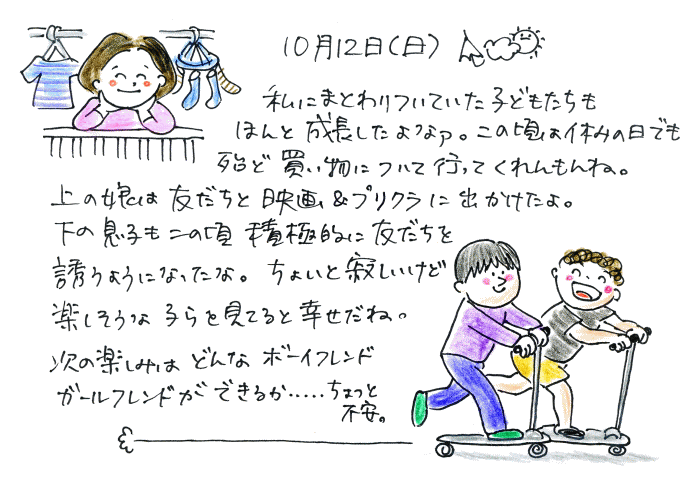 10月12日(日)
私にまとわりついていた子どもたちも
ほんと成長したよなァ。この頃は休みの日でも
殆ど買い物について行ってくれんもんね。
上の娘は友だちと映画&プリクラに出かけたよ。
下の息子もこの頃積極的に友だちを
誘うようになったな。ちょいと寂しいけど
楽しそうな子らを見てると幸せだね。
次の楽しみはどんなボーイフレンド
ガールフレンドができるか……ちょっと
不安。